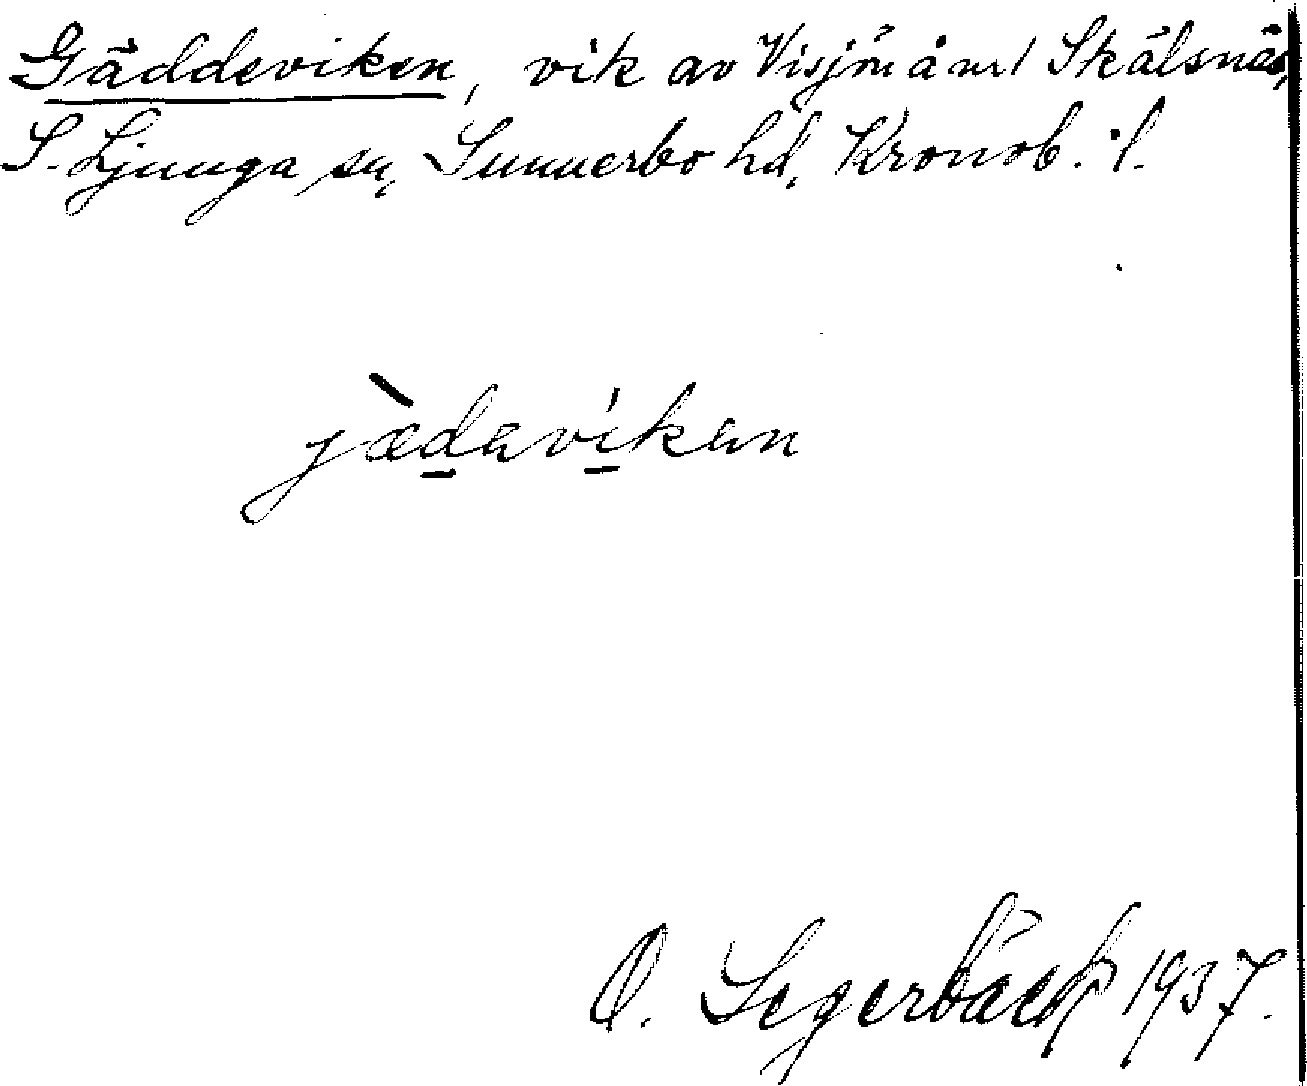 Gäddeviken, vik av Visjön å nr 1 Skälsnäs,
S. Ljunga sn, Sunnerbo hd, Kronob. l.
jæ̀daviken
O. Segerbäck 1937.